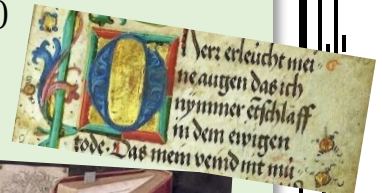 O Herr erleücht mei-
ne augen das ich
nymmer entschlaff
in dem ewigen
tode. Das mein veind nit mü